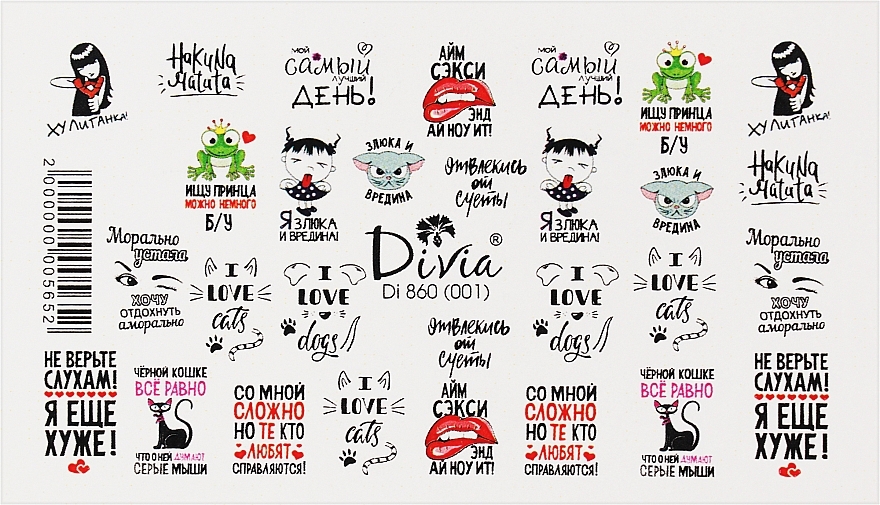 ХУЛИГАНКА!
HaKuNa
Matata
МОЙ
САМЫЙ
ЛУЧШИЙ
ДЕНЬ!
АЙМ
СЭКСИ
ЭНД
АЙ НОУ ИТ!
МОЙ
САМЫЙ
ЛУЧШИЙ
ДЕНЬ!
ИЩУ ПРИНЦА
МОЖНО НЕМНОГО
Б/У
ХУЛИГАНКА!
ИЩУ ПРИНЦА
МОЖНО НЕМНОГО
Б/У
Я ЗЛЮКА
И ВРЕДИНА!
ЗЛЮКА И
ВРЕДИНА
Отвлекись
от
суеты
Я ЗЛЮКА
И ВРЕДИНА!
ЗЛЮКА И
ВРЕДИНА
HaKuNa
Matata
2000000005652
Морально
устала
ХОЧУ
ОТДОХНУТЬ
аморально
I
LOVE
cats
I
LOVE
dogs
Divia®
Di 860 (001)
Отвлекись
от
суеты
I
LOVE
dogs
I
LOVE
cats
Морально
устала
ХОЧУ
ОТДОХНУТЬ
аморально
НЕ ВЕРЬТЕ
СЛУХАМ!
Я ЕЩЕ
ХУЖЕ!
ЧЁРНОЙ КОШКЕ
ВСЁ РАВНО
ЧТО О НЕЙ ДУМАЮТ
СЕРЫЕ МЫШИ
СО МНОЙ
СЛОЖНО
НО ТЕ КТО
ЛЮБЯТ
СПРАВЛЯЮТСЯ!
I
LOVE
cats
АЙМ
СЭКСИ
ЭНД
АЙ НОУ ИТ!
СО МНОЙ
СЛОЖНО
НО ТЕ КТО
ЛЮБЯТ
СПРАВЛЯЮТСЯ!
ЧЁРНОЙ КОШКЕ
ВСЁ РАВНО
ЧТО О НЕЙ ДУМАЮТ
СЕРЫЕ МЫШИ
НЕ ВЕРЬТЕ
СЛУХАМ!
Я ЕЩЕ
ХУЖЕ!